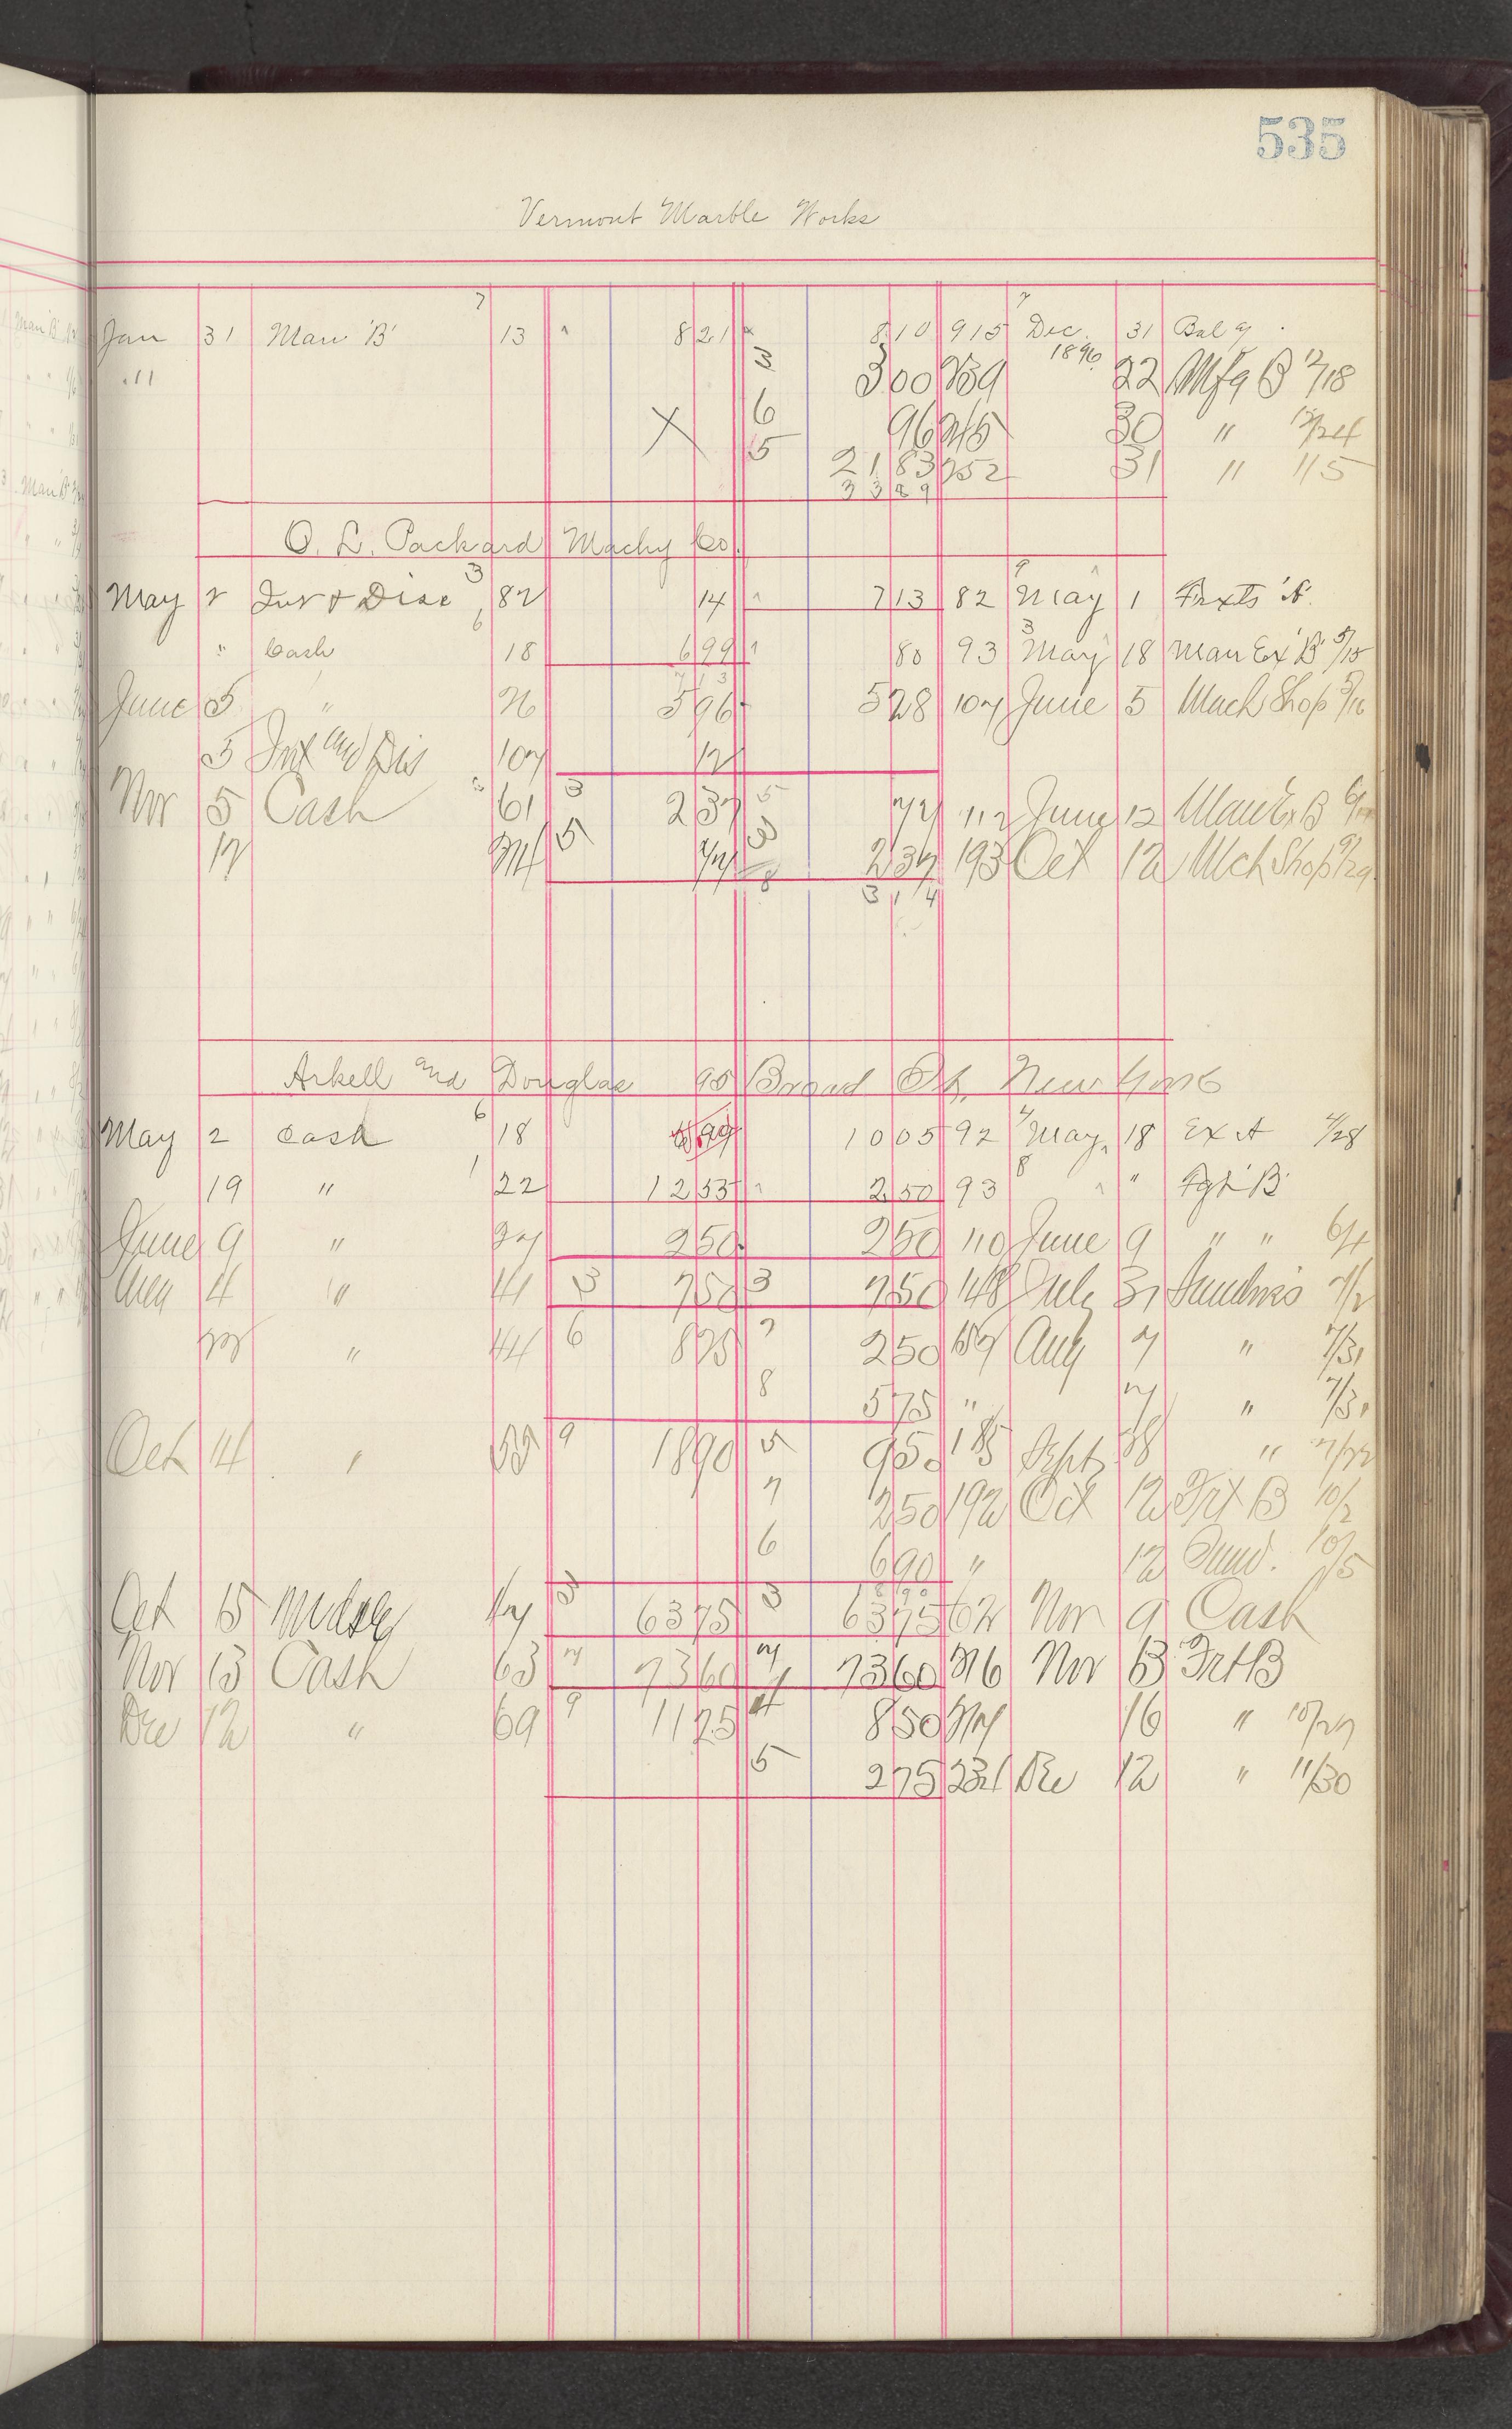 535
Vermont Marble Works
Jan 31 Man 'B' 7 13 8 21 8 10 915 7 Dec. 31 Bal
" 3 300 239 1896 22 Mfg B 12/18
X 6 96 245 30 " 12/24
5 21 83 252 31 " 1/15
33 89
O. L. Packard Machy Co.
May 2 Int & Disc 3 82 14 7 13 82 May 1 Frxts 'A'
" Cash 6 18 6 99 80 93 3 May 18 Man Ex 'B' 5/15
7 13
June 5 " 26 5 96 5 28 107 June 5 Mach Shop 5/16
5 Int and Dis 107 12
Nov 5 Cash 61 3 2 37 5 77 112 June 12 Man Ex B
17 5 77 3 2 37 193 Oct 12 Mch Shop 9/29
8 3 14
Arkell and Douglas 95 Broad St. New York
May 2 Cash 6 18 6 99 10 05 92 May 18 Ex A 4/28
19 " 1 22 12 55 2 50 93 8 " Fgt 'B'
June 9 " 27 2 50 2 50 110 June 9 " " 6/4
Aug 4 " 41 3 7 50 3 7 50 148 July 31 Sundries 7/2
" 44 6 8 25 7 2 50 157 Aug 7 " 7/31
8 5 75 " 7 " 7/31
Oct 14 " 9 18 90 5 9 50 185 Sept 28 "
7 2 50 192 Oct 12 Frt B 10/2
6 6 90 " 12 Sund. 10/5
18 90
Oct 15 Mdse 3 63 75 3 63 75 62 Nov 9 Cash
Nov 13 Cash 63 7 73 60 7 73 60 216 Nov 13 Frt B
Dec 12 " 69 9 11 25 4 8 50 217 16 " 10/27
5 2 75 231 Dec 12 " 11/30